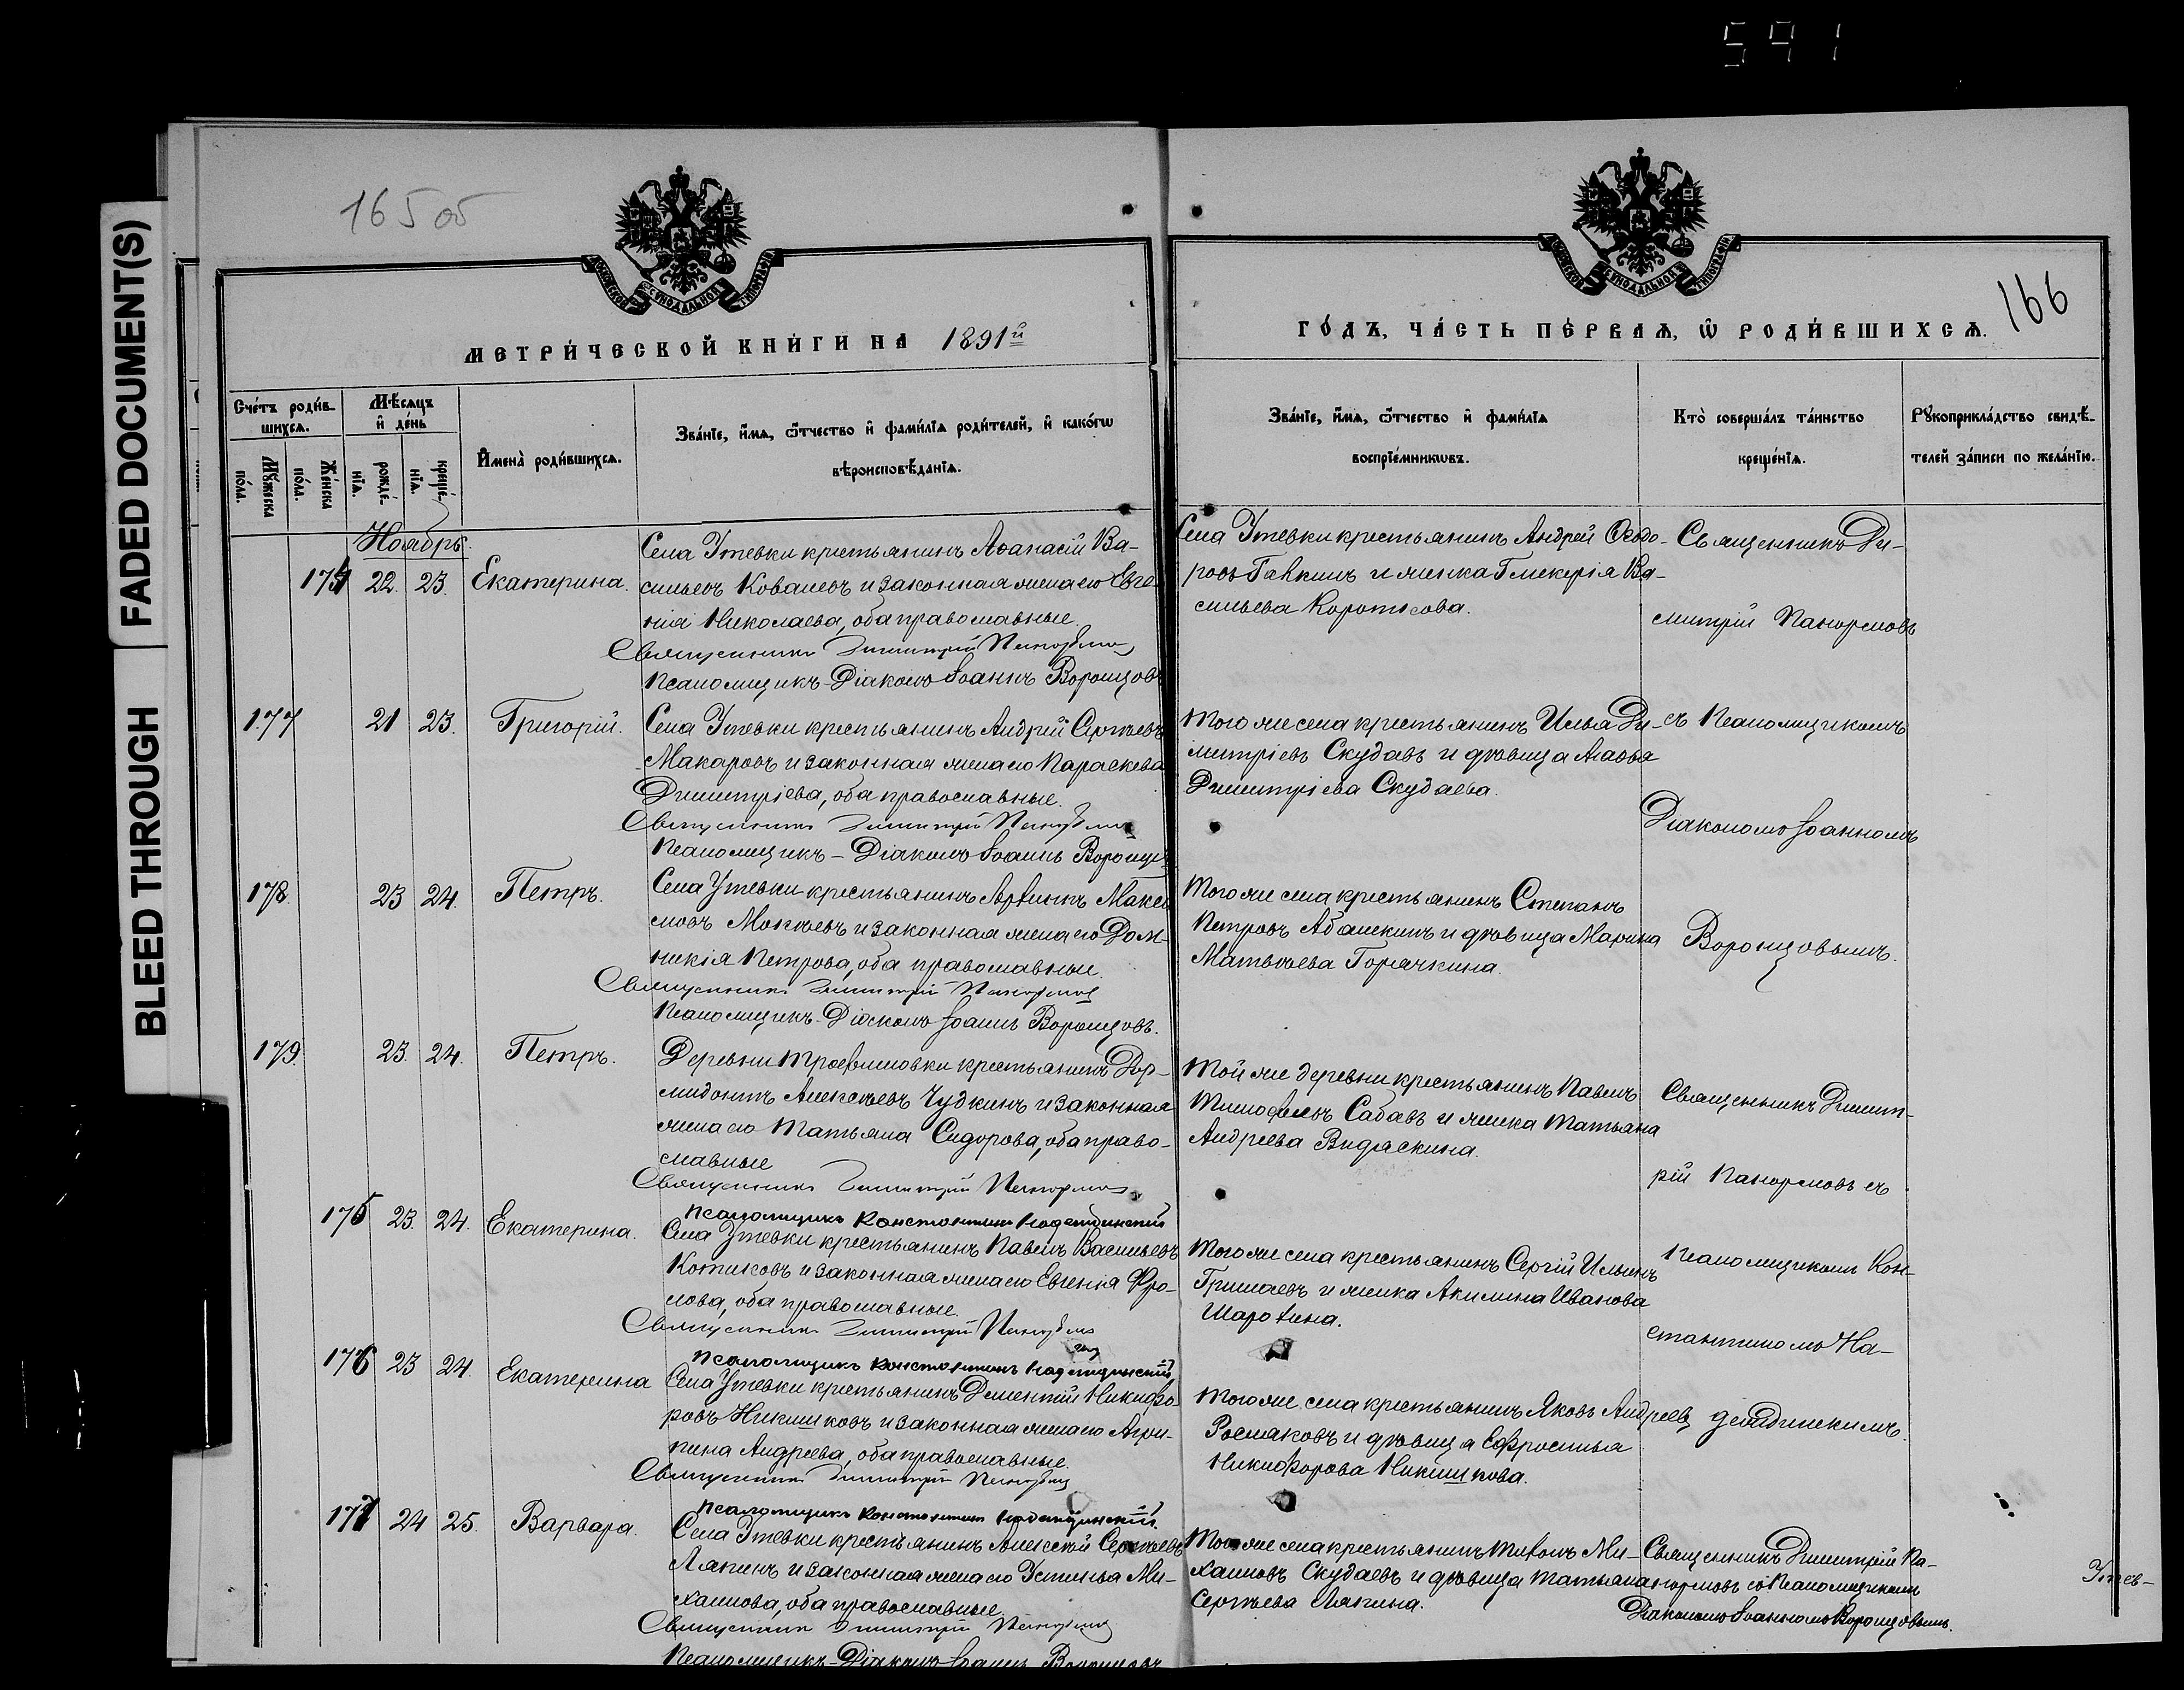 541
BLEED THROUGH FADED DOCUMENT(S)
165 об
166
МОСКОВСКОЙ СѴНОДАЛЬНОЙ ТИПОГРАФІИ
МОСКОВСКОЙ СѴНОДАЛЬНОЙ ТИПОГРАФІИ
МЕТРИ́ЧЕСКОЙ КНИ́ГИ НА 1891й
ГО́ДЪ, ЧА́СТЬ ПЕ́РВАѦ, Ѿ РОДИ́ВШИХСѦ.
Сче́тъ роди́в-
шихсѧ.
Мꙋжеска по́ла.
Же́нска по́ла.
Мѣ́сѧцъ
и҆ де́нь
рожде́-
нїѧ.
креще́-
нїѧ.
И҆мена̀ роди́вшихсѧ.
Зва́нїе, и҆́мѧ, ѻ҆́тчество и҆ фами́лїѧ роди́телей, и҆ како́гѡ
вѣроисповѣ́данїѧ.
Зва́нїе, и҆́мѧ, ѻ҆́тчество и҆ фами́лїѧ
воспрїе́мникѡвъ.
Кто̀ соверша́лъ та́инство
креще́нїѧ.
Рꙋкоприкла́дство свидѣ́-
телей за́писи по жела́нїю.
Ноябрь.
174 22. 23. Екатерина.
Села Утевки крестьянинъ Аѳанасій Ва-
сильевъ Ковалевъ и законная жена его Евге-
нія Николаева, оба православные.
Священникъ Димитрій Панормовъ
Псаломщикъ-Діаконъ Іоаннъ Воронцовъ
Села Утевки крестьянинъ Андрей Ѳеодо-
ровъ Галкинъ и женка Гликерія Ва-
сильева Короткова.
Священникъ Ди-
митрій Панормовъ
177 21 23. Григорій.
Села Утевки крестьянинъ Андрей Сергѣевъ
Макаровъ и законная жена его Параскева
Димитріева, оба православные.
Священникъ Димитрій Панормовъ
Псаломщикъ-Діаконъ Іоаннъ Воронцовъ
Того же села крестьянинъ Илья Ди-
митріевъ Скудавъ и дѣвица Агаѳья
Димитріева Скудаева.
съ Псаломщикомъ
Діакономъ Іоанномъ
178. 23 24. Петръ.
Села Утевки крестьянинъ Макси
мовъ Мокѣевъ и законная жена его Дом-
никія Петрова, оба православные.
Священникъ Димитрій Панормовъ
Псаломщикъ-Діаконъ Іоаннъ Воронцовъ.
Того же села крестьянинъ Степанъ
Петровъ Абашкинъ и дѣвица Марина
Матвѣева Горячкина.
Воронцовымъ.
179. 23. 24. Петръ.
Деревни Трофимовки крестьянинъ Дор-
мидонтъ Алексѣевъ Чудкинъ и законная
жена его Татьяна Сидорова, оба право-
славные
Священникъ Димитрій Панормовъ
Псаломщикъ Константинъ Надеждинскій
Той же деревни крестьянинъ Павелъ
Тимоѳеевъ Сабавъ и женка Татьяна
Андреева Видяскина.
Священникъ Димит-
рій Панормовъ съ
175 23. 24. Екатерина.
Села Утевки крестьянинъ Павелъ Васильевъ
Котиковъ и законная жена его Евгенія Фро-
лова, оба православные.
Священникъ Димитрій Панормовъ
Псаломщикъ Константинъ Надеждинскій
Того же села крестьянинъ Сергій Ильинъ
Гришаевъ и женка Акилина Иванова
Шарохина.
Псаломщикомъ Кон-
стантиномъ На-
176 23 24. Екатерина
Села Утевки крестьянинъ Дементій Никифо
ровъ Никишковъ и законная жена его Агри-
пина Андреева, оба православные.
Священникъ Димитрій Панормовъ
Псаломщикъ Константинъ Надеждинскій.
Того же села крестьянинъ Яковъ Андреевъ
Росляковъ и дѣвица Ефросинья
Никифорова Никишкова.
деждинскимъ.
177 24 25. Варвара.
Села Утевки крестьянинъ Алексѣй Сергѣевъ
Ляпинъ и законная жена его Устинья Ми-
хаилова, оба православные.
Священникъ Димитрій Панормовъ
Псаломщикъ-Діаконъ Іоаннъ Воронцовъ
Того же села крестьянинъ Тихонъ Ми-
хаиловъ Скудаевъ и дѣвица Татьяна
Сергѣева Ляпина.
Священникъ Димитрій Па-
нормовъ съ Псаломщикомъ
Діакономъ Іоанномъ Воронцовымъ.
Утев-